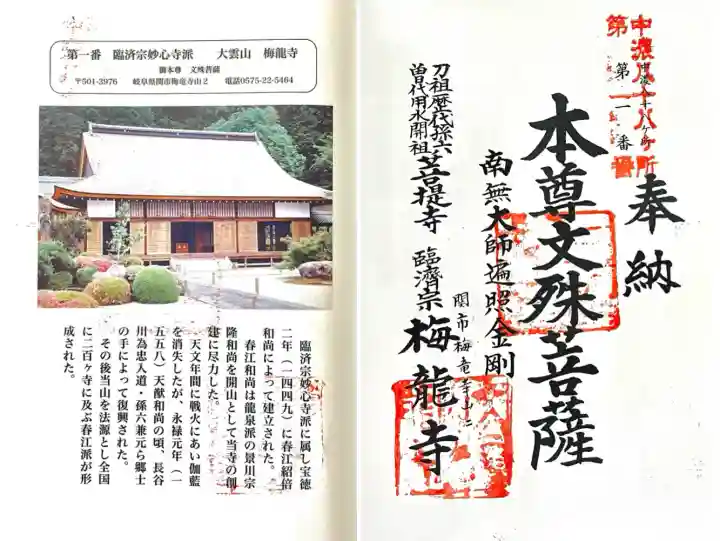 第一番　臨済宗妙心寺派　　大雲山　梅龍寺
御本尊　文殊菩薩
〒501-3976　岐阜県関市梅竜寺山2　電話0575-22-5464
臨済宗妙心寺派に属し宝徳
二年（一四四九）に春江紹倍
和尚によって建立された。
春江和尚は龍泉派の景川宗
隆和尚を開山として当寺の創
建に尽力した。
天文年間に戦火にあい伽藍
を消失したが、永禄元年（一
五五八）天猷和尚の頃、長谷
川為忠入道・孫六兼元ら郷士
の手によって復興された。
その後当山を法源とし全国
に二百ヶ寺に及ぶ春江派が形
成された。
中濃八十八ヶ所
第一番
中濃八十八ヶ所
第一番
奉納
本尊文殊菩薩
南無大師遍照金剛
関市梅竜寺山二
刀祖歴代孫六
曽代用水開祖
菩提寺 臨濟宗 梅龍寺